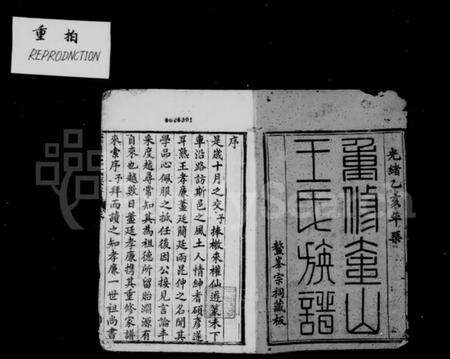 重拍
REPRODNCTION
光緒乙亥年鐫
重修金山
王氏族譜
鰲峯宗祠藏板
序
是歲十月之交予捧檄來權仙遊篆未下
車沿路訪斯邑之風土人情紳耆碩彥遂
耳熟王孝廉藎廷簡廷兩昆仲之名聞其
學品心佩服之抵任後因公接見言論丰
采度越尋常知其為祖德所留貽淵源有
自來也越數日藎廷孝廉携其重修家譜
來索序予拜而讀之知孝廉一世祖尚書